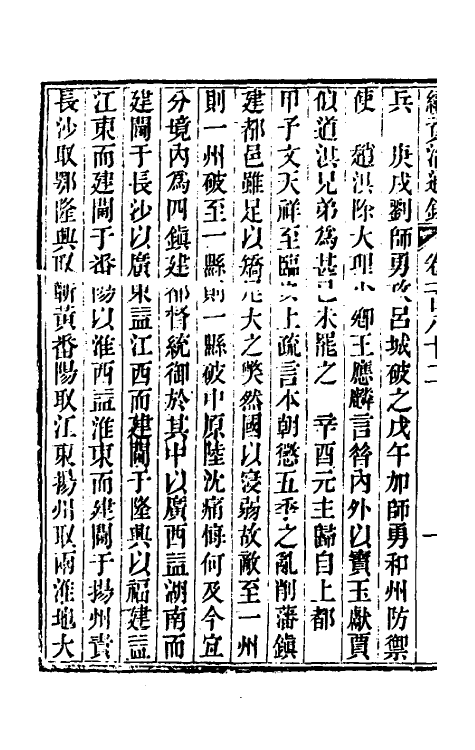 續資治通鑑 卷一百八十二 一
兵 庚戌劉師勇攻呂城破之戊午加師勇和州防禦
使 趙淇除大理少卿王應麟言昝內外以寶玉獻賈
似道淇兄弟為甚己未罷之 辛酉元主歸自上都
甲子文天祥至臨安上疏言本朝懲五季之亂削藩鎮
建都邑雖足以矯尾大之獘然國以寖弱故敵至一州
則一州破至一縣則一縣破中原陸沈痛悔何及今宜
分境內為四鎮建都督統御於其中以廣西益湖南而
建閫于長沙以廣東益江西而建閫于隆興以福建益
江東而建閫于番陽以淮西益淮東而建閫于揚州責
長沙取鄂隆興取蘄黃番陽取江東揚州取兩淮地大